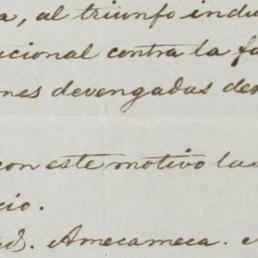 a, al triunfo indu
ucional contra la fa
nes devengadas des
con este motivo las
cio.
ed. Amecameca.